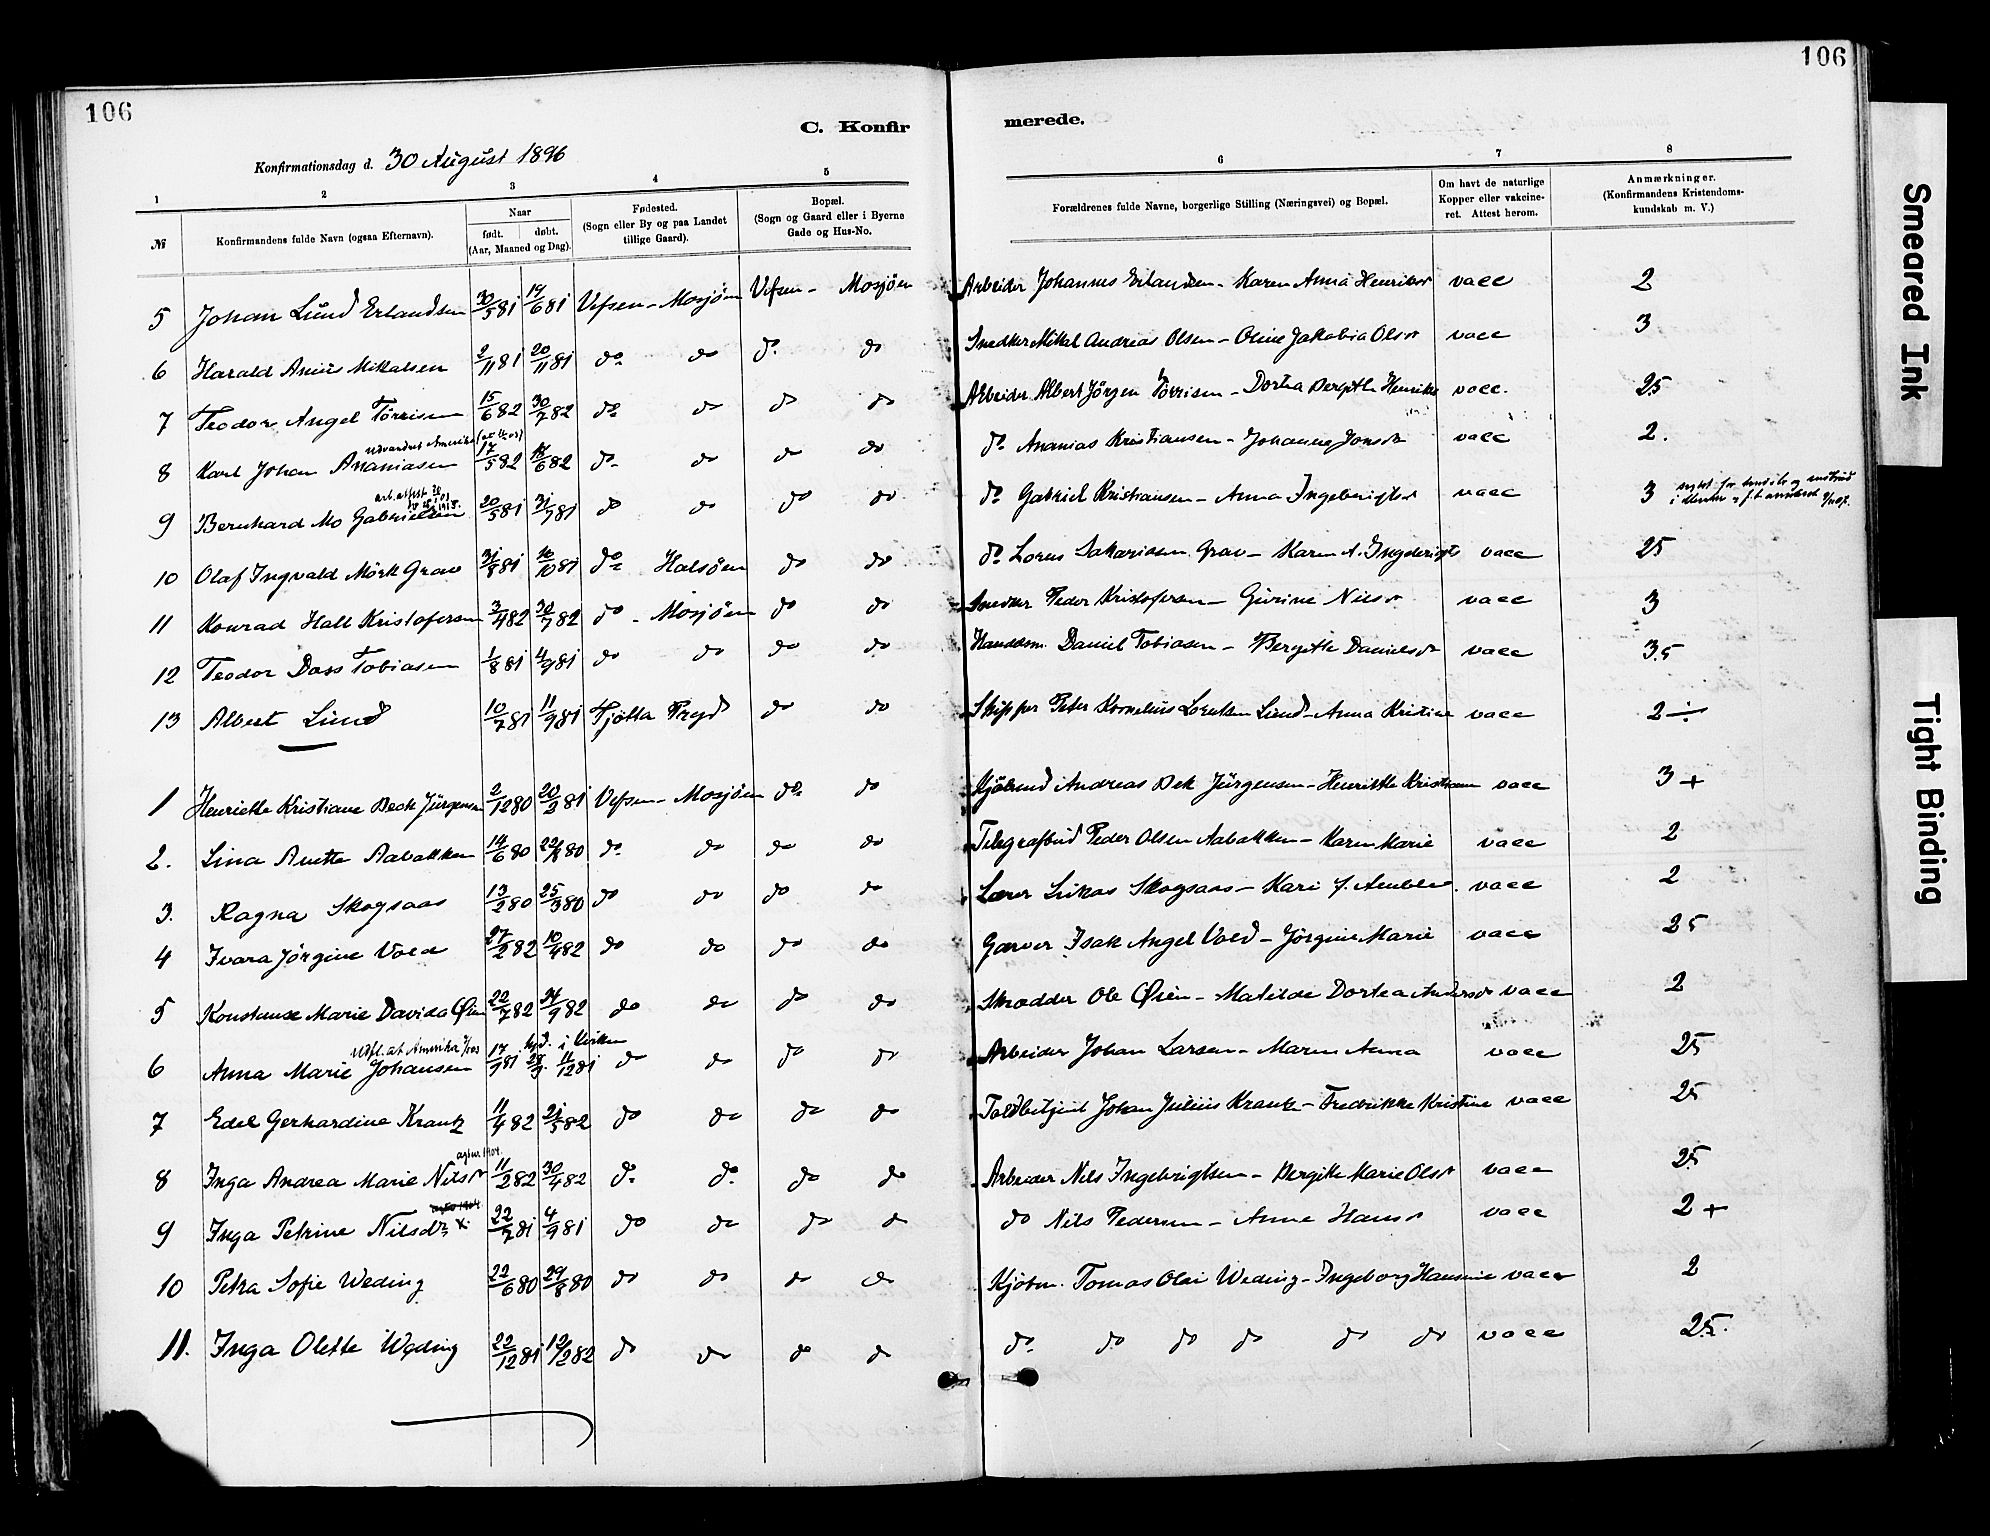 106
106
C. Konfir merede.
Konfirmationsdag d. 30 August 1896
1 2 3 4 5 6 7 8
№ Konfirmandens fulde Navn (ogsaa Efternavn). Naar født. døbt. (Aar, Maaned og Dag). Fødested. (Sogn eller By og paa Landet tillige Gaard). Bopæl. (Sogn og Gaard eller i Byerne Gade og Hus-No. Forældrenes fulde Navne, borgerlige Stilling (Næringsvei) og Bopæl. Om havt de naturlige Kopper eller vakcineret. Attest herom. Anmærkninger. (Konfirmandens Kristendomskundskab m. V.)
5 Johan Lund Erlandsen 30/5 81 19/6 81 Vefsen - Mosjøen Vefsen - Mosjøen Arbeider Johannes Erlandsen - Karen Anna Henriksdr vacc 2
6 Harald Anius Mikalsen 2/11 81 20/11 81 do do do do Snedker Mikal Andreas Olsen - Oline Jakobia Olsdr vacc 3
7 Teodor Angel Tørrisen 15/6 82 30/7 82 do do do do Arbeider Albert Jørgen Tørrisen - Dortea Bergitte Henriks vacc. 25
udvandret Amerika
8 Karl Johan Ananiasen 17/5 82 18/6 82 do do do do do Ananias Kristiansen - Johanna Jonsdr vacc 2.
9 Bernhard Mo Gabrielsen 20/5 81 31/7 81 do do do do do Gabriel Kristiansen - Anna Ingebrigtsdr vacc 3
10 Olaf Ingvald Mörk Grav 31/8 81 16/10 81 do Halsøen do do do Lorns Sakariasen Grav - Karen A. Ingebrigts vacc 25
11 Konrad Hall Kristofersen 3/4 82 30/7 82 do - Mosjøen do do Snedker Peder Kristofersen - Gurine Nilsdr vacc 3
12 Teodor Dass Tobiasen 1/8 81 4/9 81 do do do do Handelsm. Daniel Tobiasen - Bergitte Danielsdr vacc 3.5
13 Albert Lund 10/7 81 11/9 81 Tjøtta Prgd do do Skipper Peter Kornelius Lorentsen Lund - Anna Kristine vacc 2 ÷
1 Henriette Kristiane Beck Jürgensen 2/12 80 20/2 81 Vefsen - Mosjøen do do Kjøbmd Andreas Bek Jürgensen - Henriette Kristiane vacc 3 +
2. Lina Anette Aabakken 14/6 80 22/8 80 do do do do Telegrafbud Peder Olsen Aabakken - Karen Marie vacc 2
3. Ragna Skogsaas 13/2 80 25/3 80 do do do do Lærer Lukas Skogsaas - Kari J. vacc 2
4 Ivara Jørgine Vold 27/2 82 10/4 82 do do do do Garver Isak Angel Vold - Jørgine Marie vacc 25
5 Konstanse Marie Davida Øien 22/7 82 24/9 82 do do do do Skrædder Ole Øien - Matilde Dortea Andersdr vacc 2
Udfl. at Amerika
6 Anna Marie Johansen 17/9 81 11/12 81 do do do do Arbeider Johan Larsen - Maren Anna vacc 25
7 Edel Gerhardine Krantz 11/4 82 21/5 82 do do do do Toldbetjent Johan Julius Krantz - Fredrikke Kristine vacc 25
8 Inga Andrea Marie Nilsdr 11/2 82 30/4 82 do do do do Arbeider Nils Ingebrigtsen - Bergitte Marie Olsdr vacc 25
9 Inga Petrine Nilsdr 22/7 81 4/9 81 do do do do do Nils Pedersen - Anne Hansdr vacc 2 +
10 Petra Sofie Weding 22/6 80 29/8 80 do do do do Kjøbm. Tomas Olai Weding - Ingeborg Hansine vacc 2
11. Inga Olette Weding 22/12 81 12/2 82 do do do do do do do do do do vacc 25.
Smeared Ink
Tight Binding